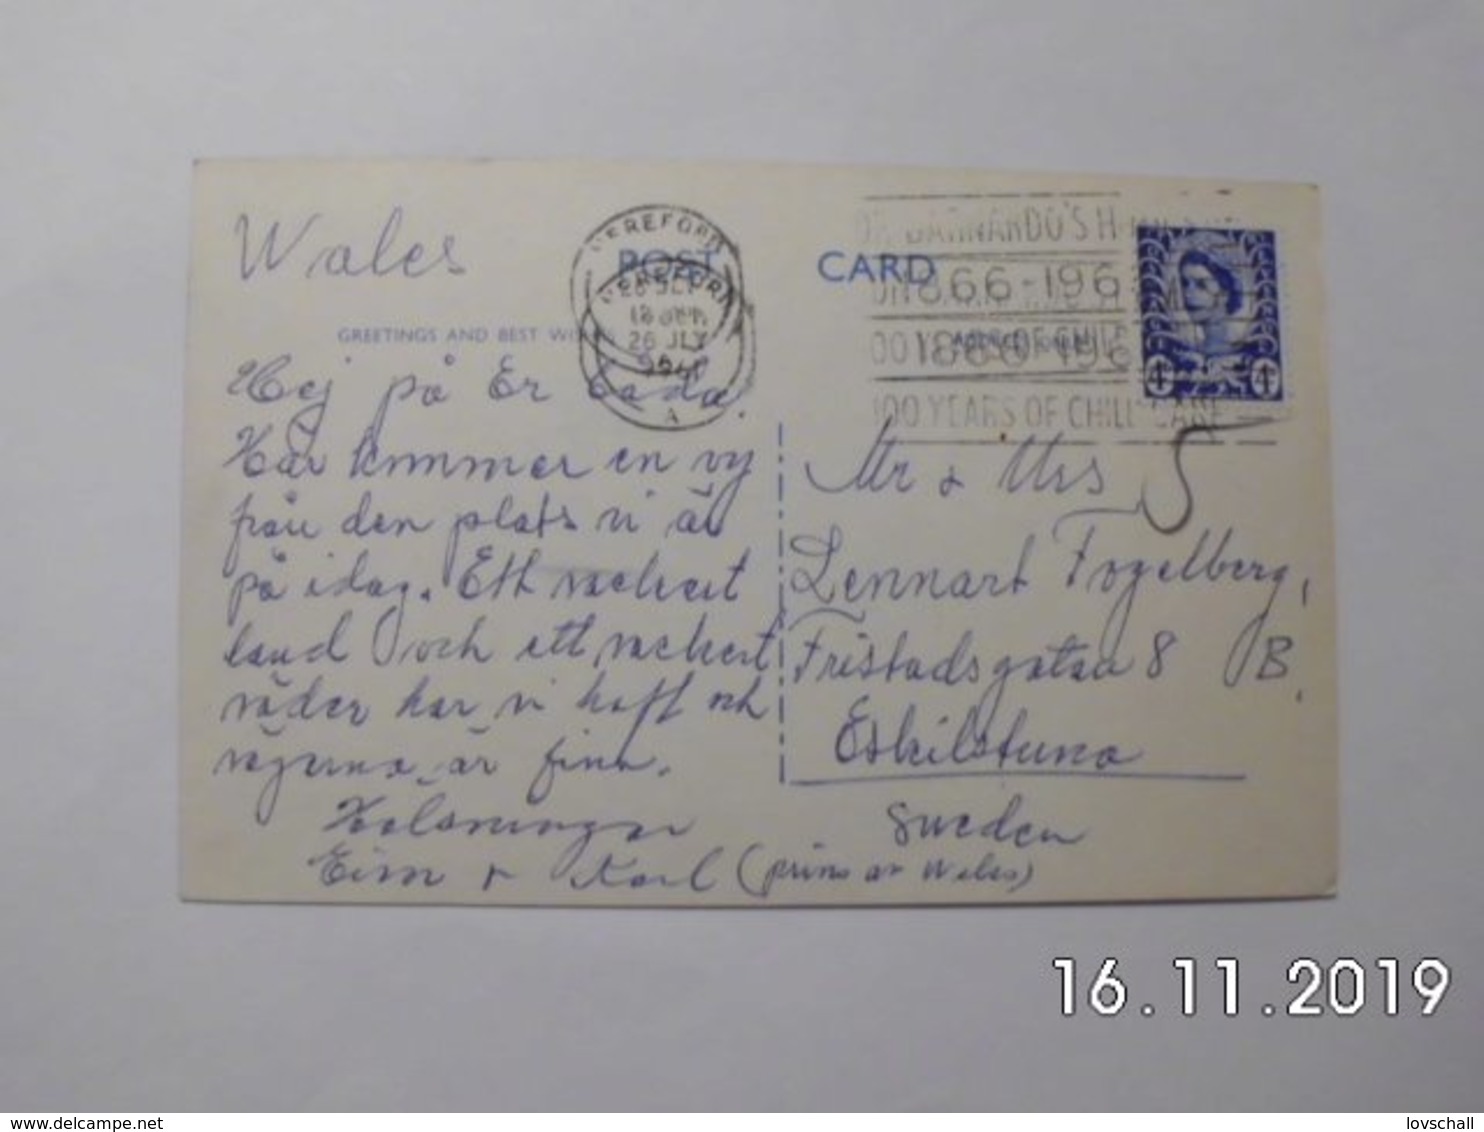 Wales
POST CARD
GREETINGS AND BEST
HEREFORD
HEREFORD
26 JLY
A
DR BARNARDO'S
1866-196
1866-196
100 YEARS OF CHILD CARE
Hej på Er båda.
Här kommer en vy
från den plats vi är
på idag. Ett vackert
land och ett vackert
väder har vi haft och
vägarna är fina.
Hälsningar
& Karl (prins av Wales)
Mr & Mrs
Lennart Fogelberg,
Fristadsgatan 8 B.
Eskilstuna
Sweden
16.11.2019
www.delcampe.net
lovschall